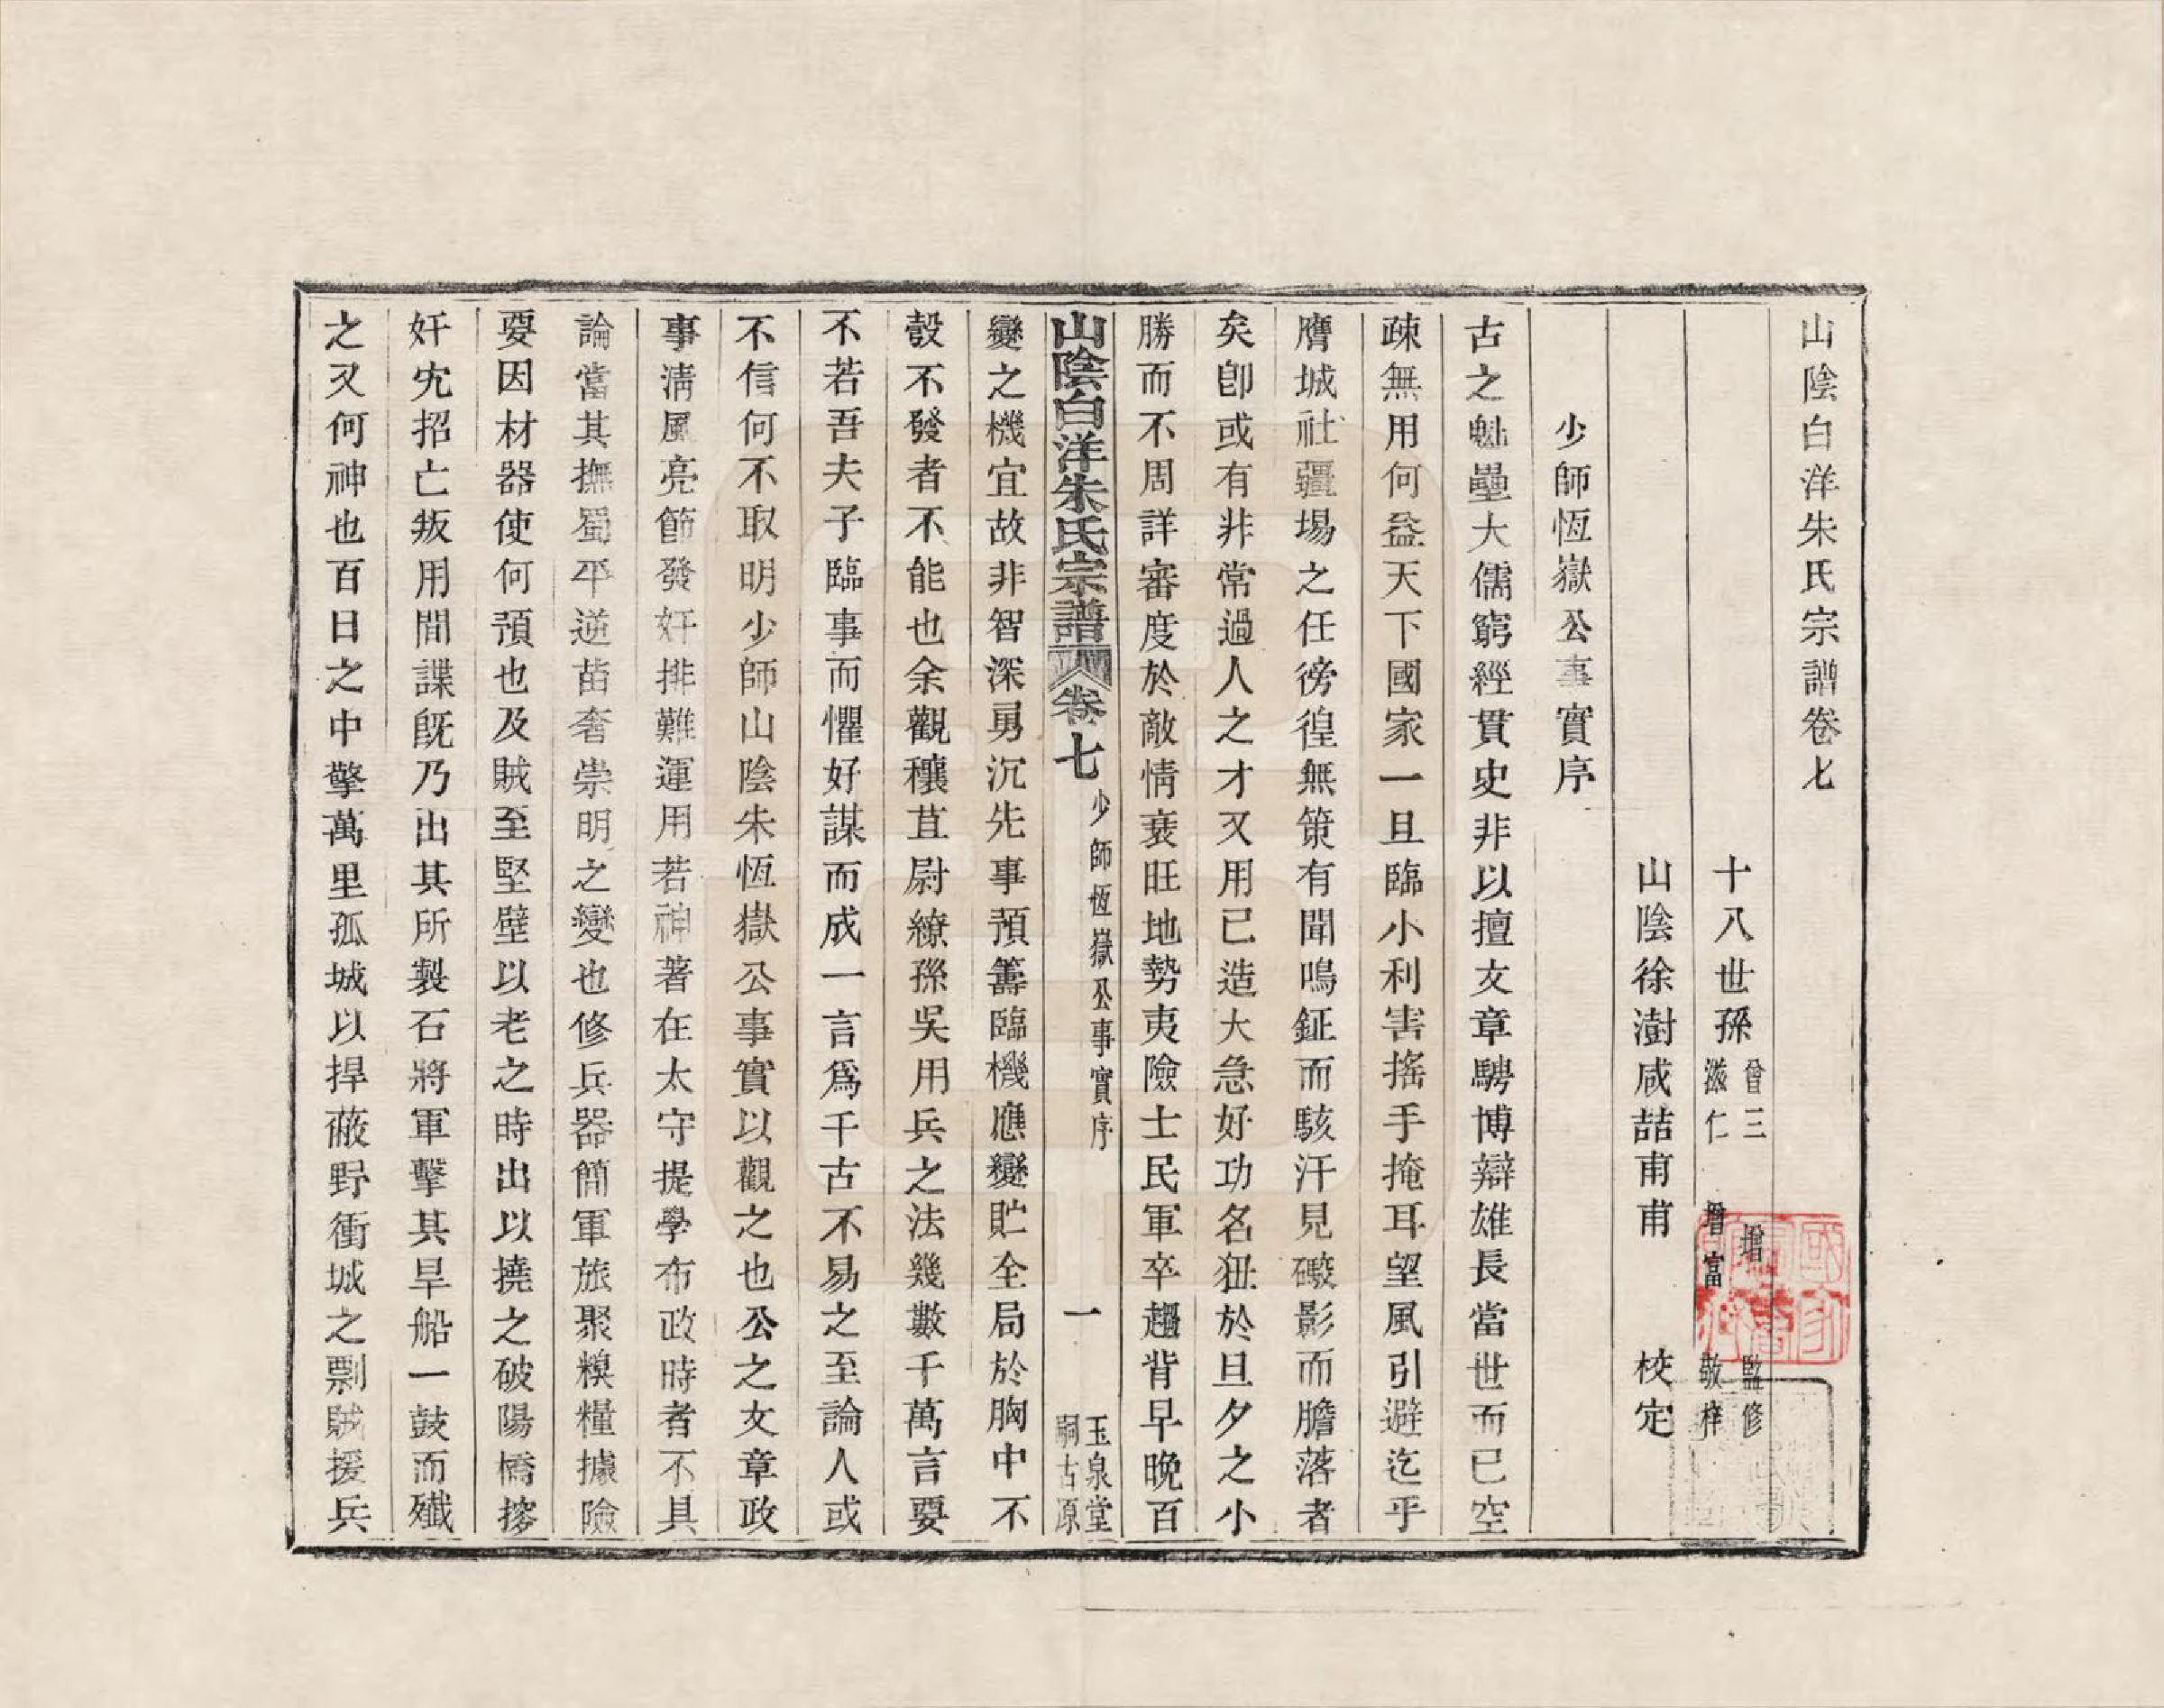 山陰白洋朱氏宗譜卷七
十八世孫曾三滋仁 增增富 監修敬梓
山陰徐澍咸喆甫甫 校定
少師恆嶽公事實序
古之魁壘大儒窮經貫史非以擅文章騁博辯雄長當世而已空
疎無用何益天下國家一旦臨小利害搖手掩耳望風引避迄乎
膺城社疆場之任徬徨無策有聞鳴鉦而駭汗見礮影而膽落者
矣卽或有非常過人之才又用已造大急好功名狃於旦夕之小
勝而不周詳審度於敵情衰旺地勢夷險士民軍卒趨背早晚百
山陰白洋朱氏宗譜 卷七 少師恆嶽公事實序 一 玉泉堂嗣古原
變之機宜故非智深勇沉先事預籌臨機應變貯全局於胸中不
彀不發者不能也余觀穰苴尉繚孫吳用兵之法幾數千萬言要
不若吾夫子臨事而懼好謀而成一言爲千古不易之至論人或
不信何不取明少師山陰朱恆嶽公事實以觀之也公之文章政
事淸風亮節發奸排難運用若神著在太守提學布政時者不具
論當其撫蜀平逆苗奢崇明之變也修兵器簡軍旅聚糗糧據險
要因材器使何預也及賊至堅壁以老之時出以撓之破陽橋擦
奸宄招亡叛用間諜旣乃出其所製石將軍擊其旱船一鼓而殲
之又何神也百日之中擎萬里孤城以捍蔽野衝城之剽賊援兵